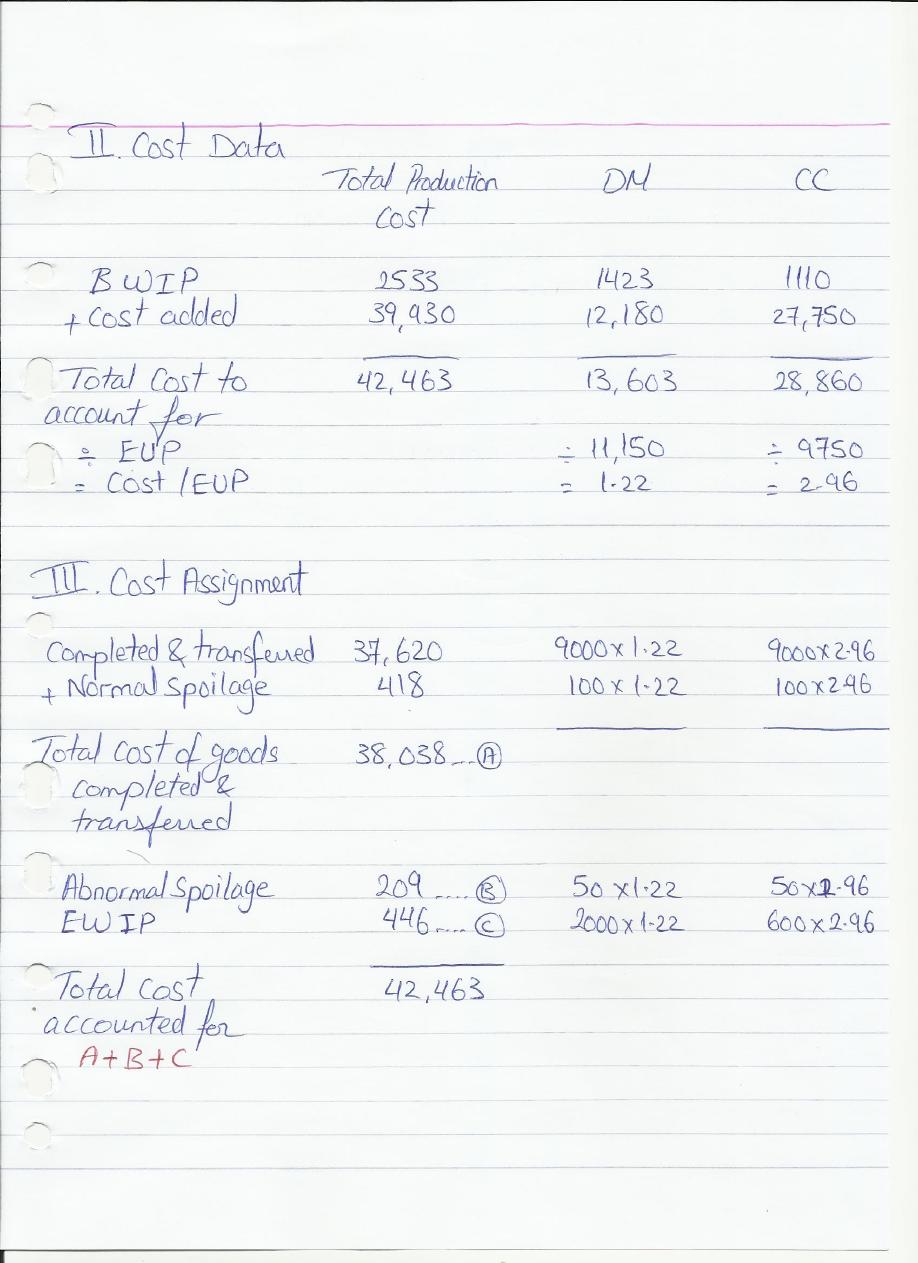 II. Cost Data
Total Production DM CC
Cost
BWIP 2533 1423 1110
+ Cost added 39,930 12,180 27,750
Total Cost to 42,463 13,603 28,860
account for
÷ EUP ÷ 11,150 ÷ 9750
= Cost/EUP = 1.22 = 2.96
III. Cost Assignment
Completed & transferred 37,620 9000 x 1.22 9000 x 2.96
+ Normal Spoilage 418 100 x 1.22 100 x 2.96
Total Cost of goods 38,038 ... A
completed &
transferred
Abnormal Spoilage 209 .... B 50 x 1.22 50 x 2.96
EWIP 446 .... C 2000 x 1.22 600 x 2.96
Total Cost 42,463
accounted for
A+B+C